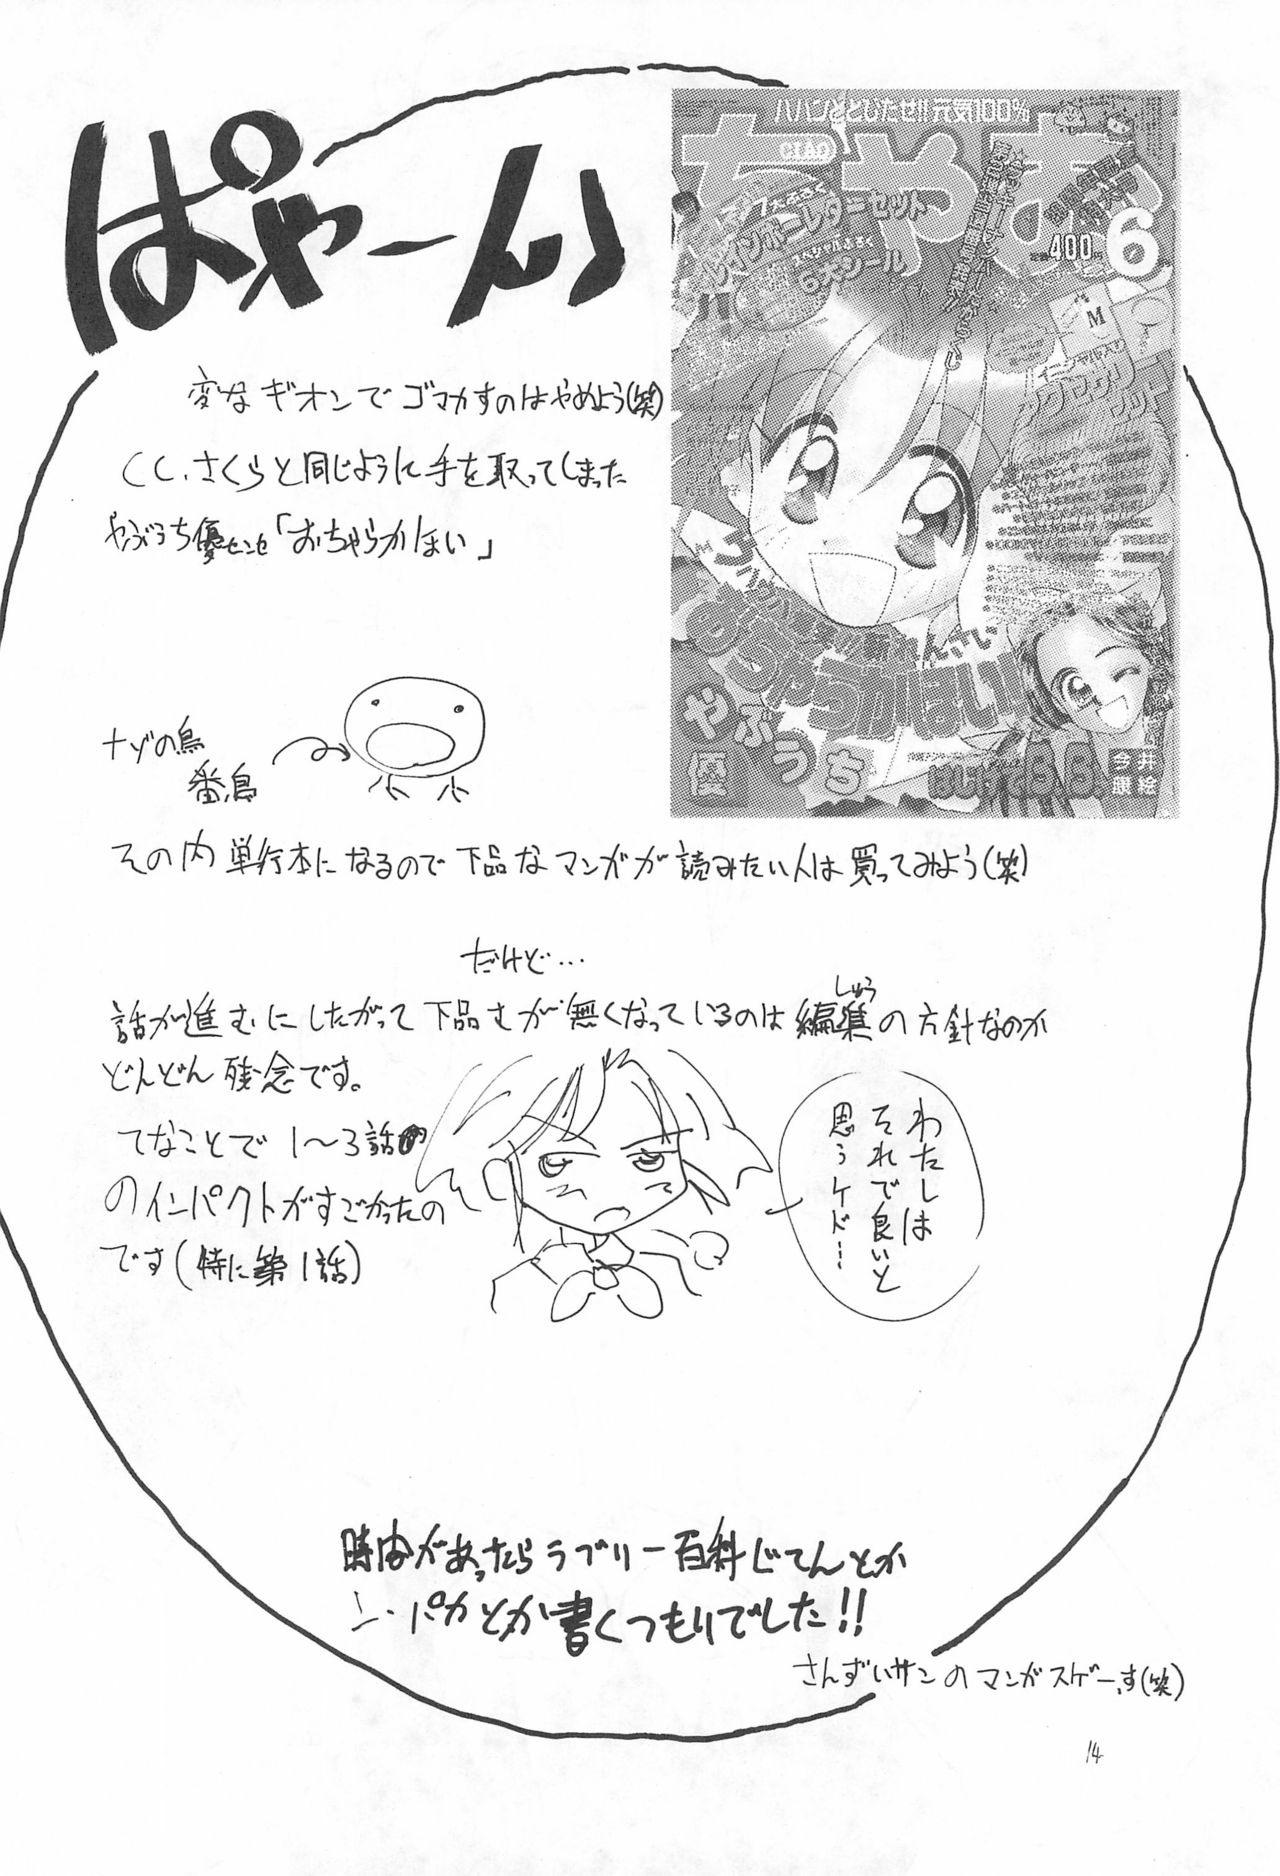 ぱやーん
変なギオンでゴマカすのはやめよう(笑)
CC.さくらと同じように手を取ってしまった
やぶうち優センセ「おちゃらかほい」
ナゾの鳥
番鳥
その内単行本になるので下品なマンガが読みたい人は買ってみよう(笑)
だけど…
話が進むにしたがって下品さが無くなっているのは編集の方針なのか
しゅう
どんどん残念です。
てなことで1〜3話
のインパクトがすごかったの
です(特に第1話)
わたしは
それで良いと
思うケド…
時間があったらラブリー百科じてんとか
ン・パカとか書くつもりでした!!
さんずいサンのマンガスゲーっす(笑)
14
ババンととじたぜ!!元気100%
ちゃお
CIAO
6
400円
レインボーレターセット
6大シール
M
新れんさい
おちゃらかほい!!
やぶうち
優
はじけてB.B.
今井
康絵